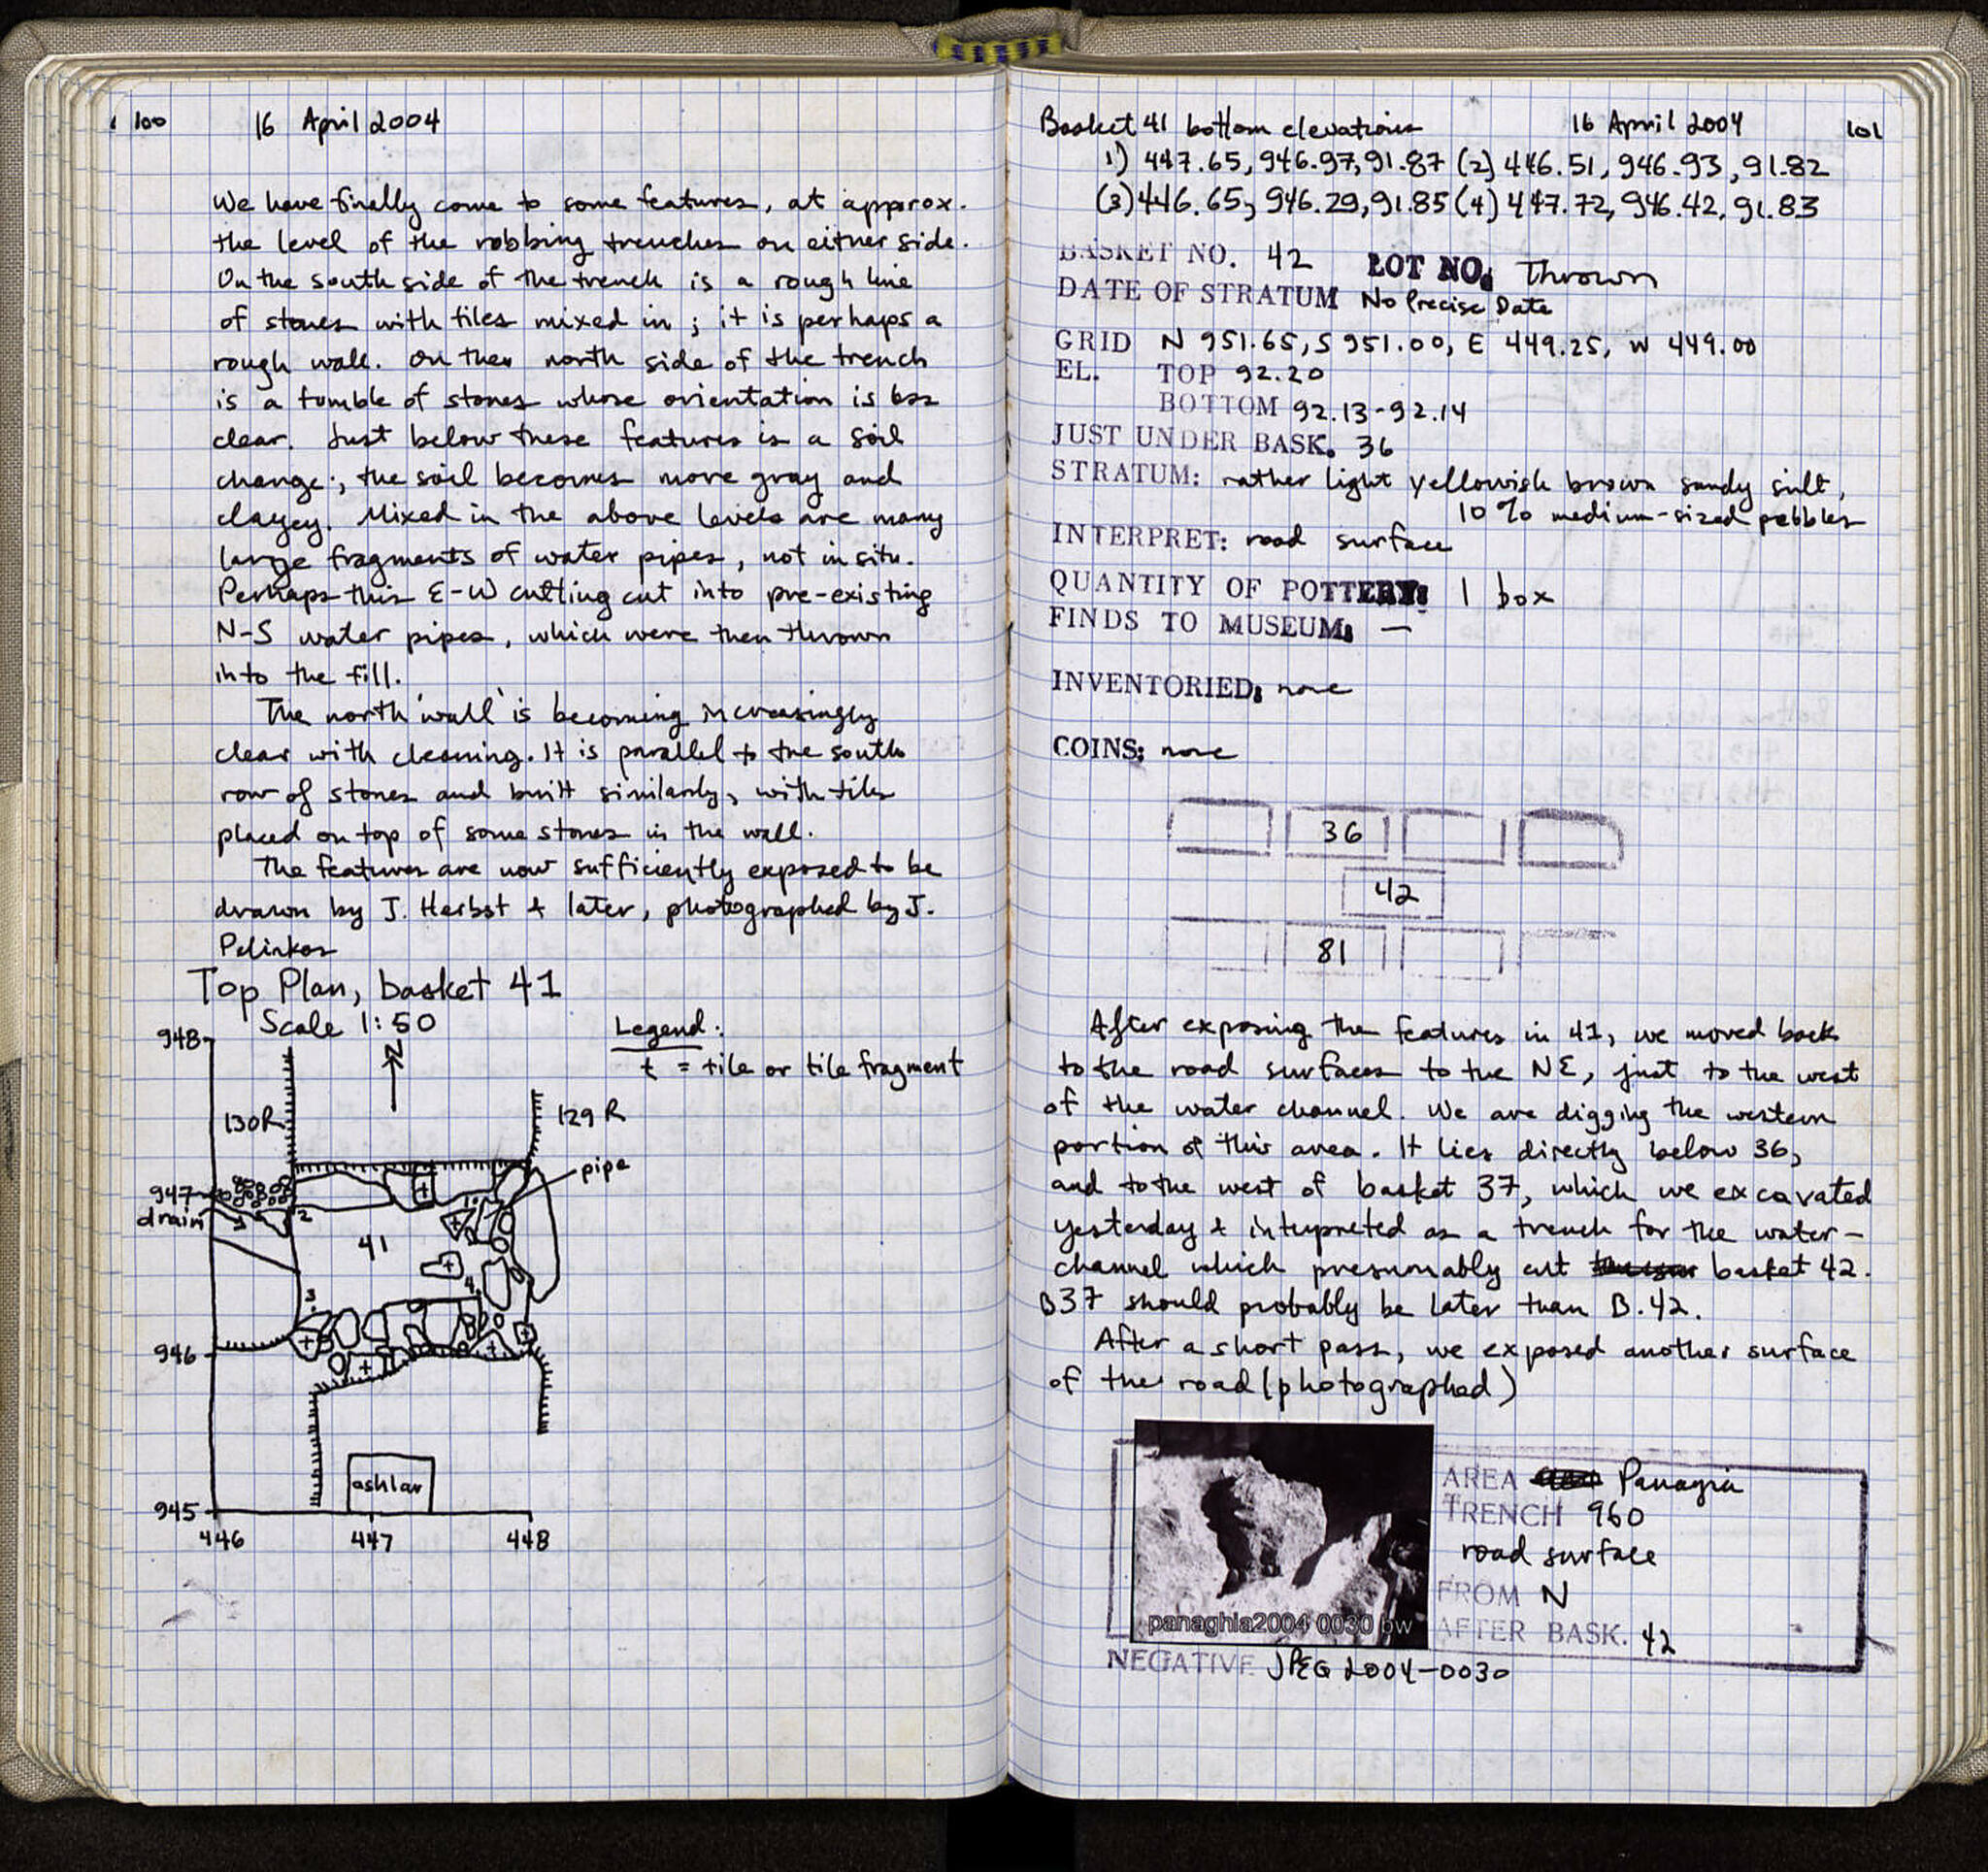 100 16 April 2004
We have finally come to some features, at approx.
the level of the robbing trenches on either side.
On the south side of the trench is a rough line
of stones with tiles mixed in; it is perhaps a
rough wall. On the north side of the trench
is a tumble of stones whose orientation is less
clear. Just below these features is a soil
change; the soil becomes more gray and
clayey. Mixed in the above levels are many
large fragments of water pipes, not in situ.
Perhaps this E-W cutting cut into pre-existing
N-S water pipes, which were then thrown
into the fill.
The north 'wall' is becoming increasingly
clear with cleaning. It is parallel to the south
row of stones and built similarly, with tiles
placed on top of some stones in the wall.
The features are now sufficiently exposed to be
drawn by J. Herbst & later, photographed by J.
Pelinkos
Top Plan, basket 41
Scale 1:50
Legend:
t = tile or tile fragment
948
N
130R
129 R
pipe
947
drain
1
2
41
t
t
t
4
3
t
t
t
t
946
ashlar
945
446 447 448
Basket 41 bottom elevations 16 April 2004 101
1) 447.65, 946.97, 91.87 (2) 446.51, 946.93, 91.82
(3) 446.65, 946.29, 91.85 (4) 447.72, 946.42, 91.83
BASKET NO. 42 LOT NO. Thrown
DATE OF STRATUM No Precise Date
GRID N 951.65, S 951.00, E 449.25, W 449.00
EL. TOP 92.20
BOTTOM 92.13-92.14
JUST UNDER BASK. 36
STRATUM: rather light yellowish brown sandy silt,
10% medium-sized pebbles
INTERPRET: road surface
QUANTITY OF POTTERY: 1 box
FINDS TO MUSEUM: —
INVENTORIED: none
COINS: none
36
42
81
After exposing the features in 41, we moved back
to the road surfaces to the NE, just to the west
of the water channel. We are digging the western
portion of this area. It lies directly below 36,
and to the west of basket 37, which we excavated
yesterday & interpreted as a trench for the water-
channel which presumably cut basket 42.
B37 should probably be later than B.42.
After a short pass, we exposed another surface
of the road (photographed)
panaghia2004 0030 bw
AREA Panagia
TRENCH 960
road surface
FROM N
AFTER BASK. 42
NEGATIVE JPEG 2004-0030